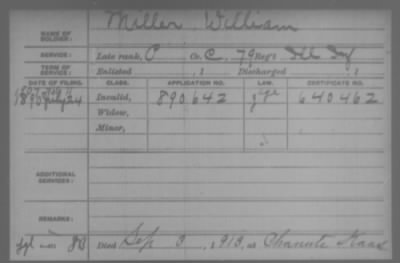 Miller William
NAME OF SOLDIER:
SERVICE: Late rank, P Co. C, 79 Reg't Ill Inf
TERM OF SERVICE: Enlisted , 1 Discharged , 1
DATE OF FILING. CLASS. APPLICATION NO. LAW. CERTIFICATE NO.
1890 July 24 Invalid, 890642 640462
Widow,
Minor,
ADDITIONAL SERVICES:
REMARKS:
Died Sep 3, 1913, at Chanute Kans